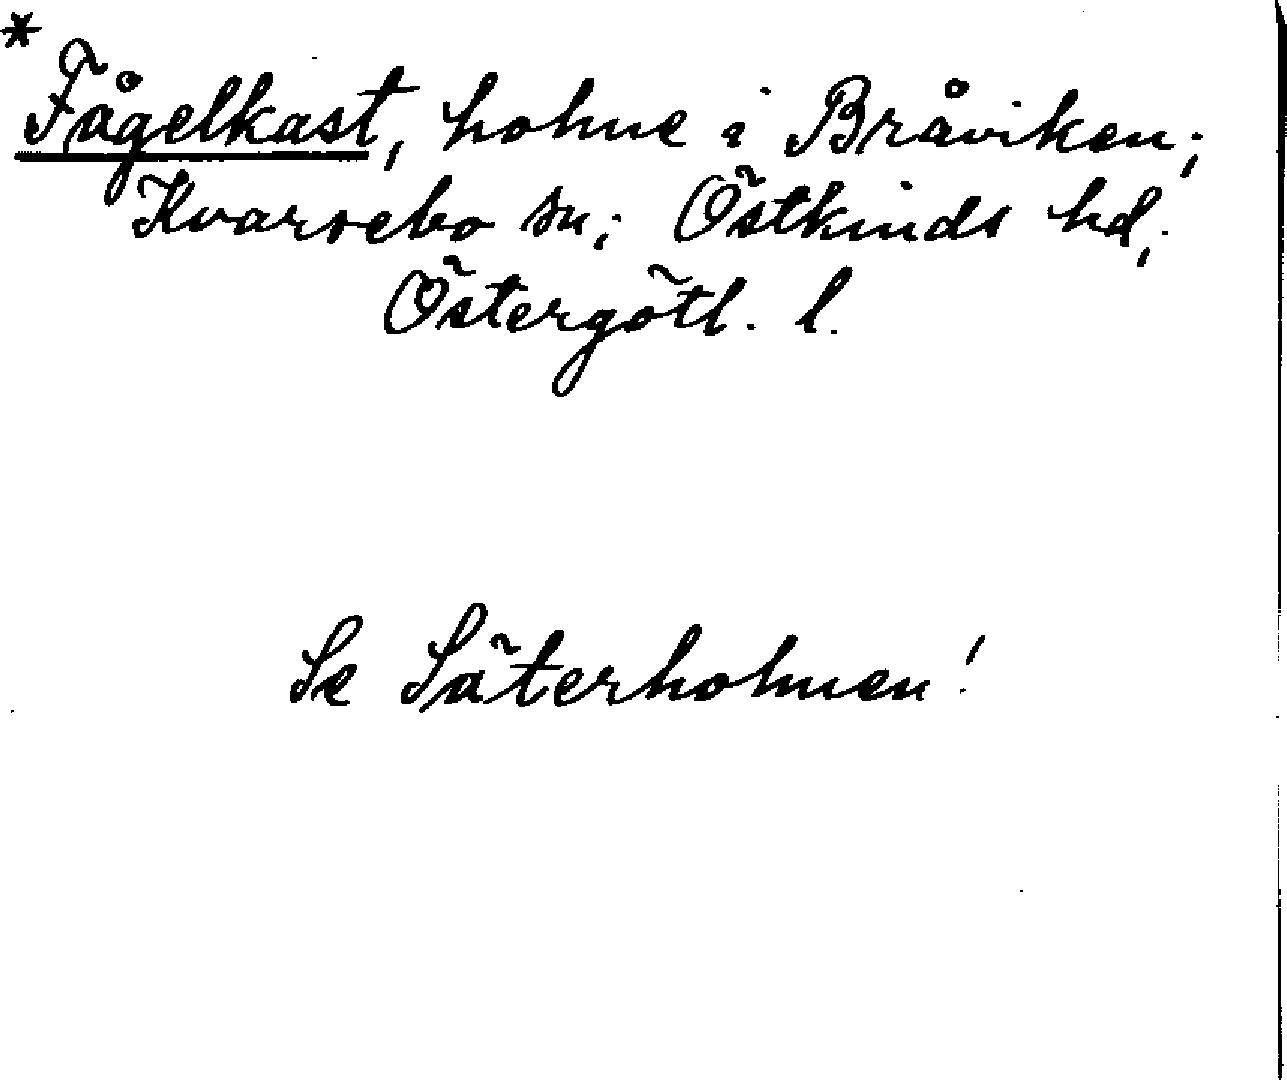 *
Fågelkast, holme i Bråviken;
Kvarsebo sn; Östkinds hd;
Östergötl. l.
Se Säterholmen!